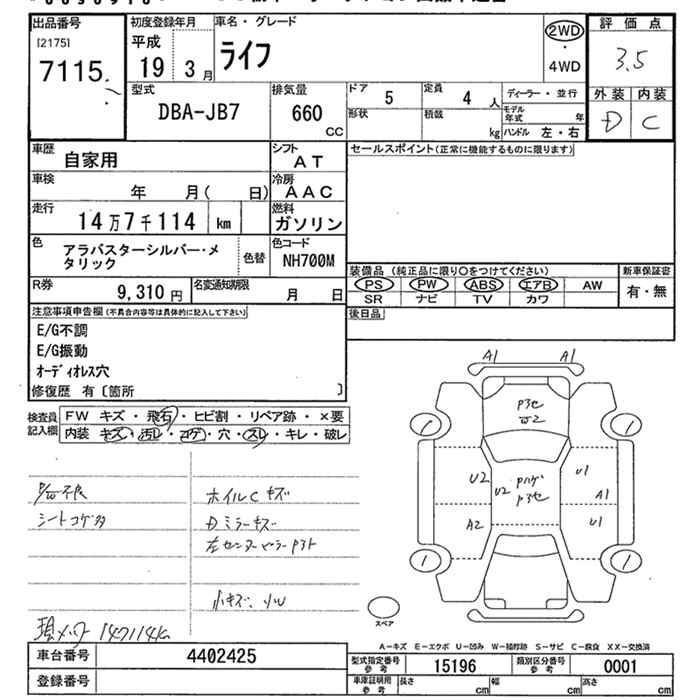 出品番号
[2175]
7115
初度登録年月
平成
19 3月
車名・グレード
ライフ
2WD
・
4WD
評価点
3.5
外装 内装
D C
型式
DBA-JB7
排気量
660
CC
ドア 5
定員 4 人
形状
積載 kg
ディーラー・並行
モデル年式 年
ハンドル 左・右
車歴 自家用
シフト AT
セールスポイント(正常に機能するものに限ります)
車検 年 月( 日)
冷房 AAC
走行 14万7千114 km
燃料 ガソリン
色 アラバスターシルバー・メタリック
色替
色コード NH700M
装備品(純正品に限り○をつけてください)
新車保証書
PS PW ABS エアB AW
有・無
SR ナビ TV カワ
R券 9,310円
名変通知期限 月 日
後日品
注意事項申告欄(不具合内容等は具体的に記入して下さい)
E/G不調
E/G振動
オーディオレス穴
修復歴 有〔箇所 〕
検査員記入欄
FW キズ・飛石・ヒビ割・リペア跡・×要
内装 キズ・汚レ・コゲ・穴・スレ・キレ・破レ
シートコゲ多
ホイルCキズ
Dミラーキズ
小キズ、小U
A1 A1
U2
U2
U1
A1
A2
U1
スペア
A-キズ E-エクボ U-凹ミ W-補修跡 S-サビ C-腐食 XX-交換済
車台番号 4402425
型式指定番号 参考 15196
類別区分番号 参考 0001
登録番号
車庫証明用 参考
長さ cm
幅 cm
高さ cm